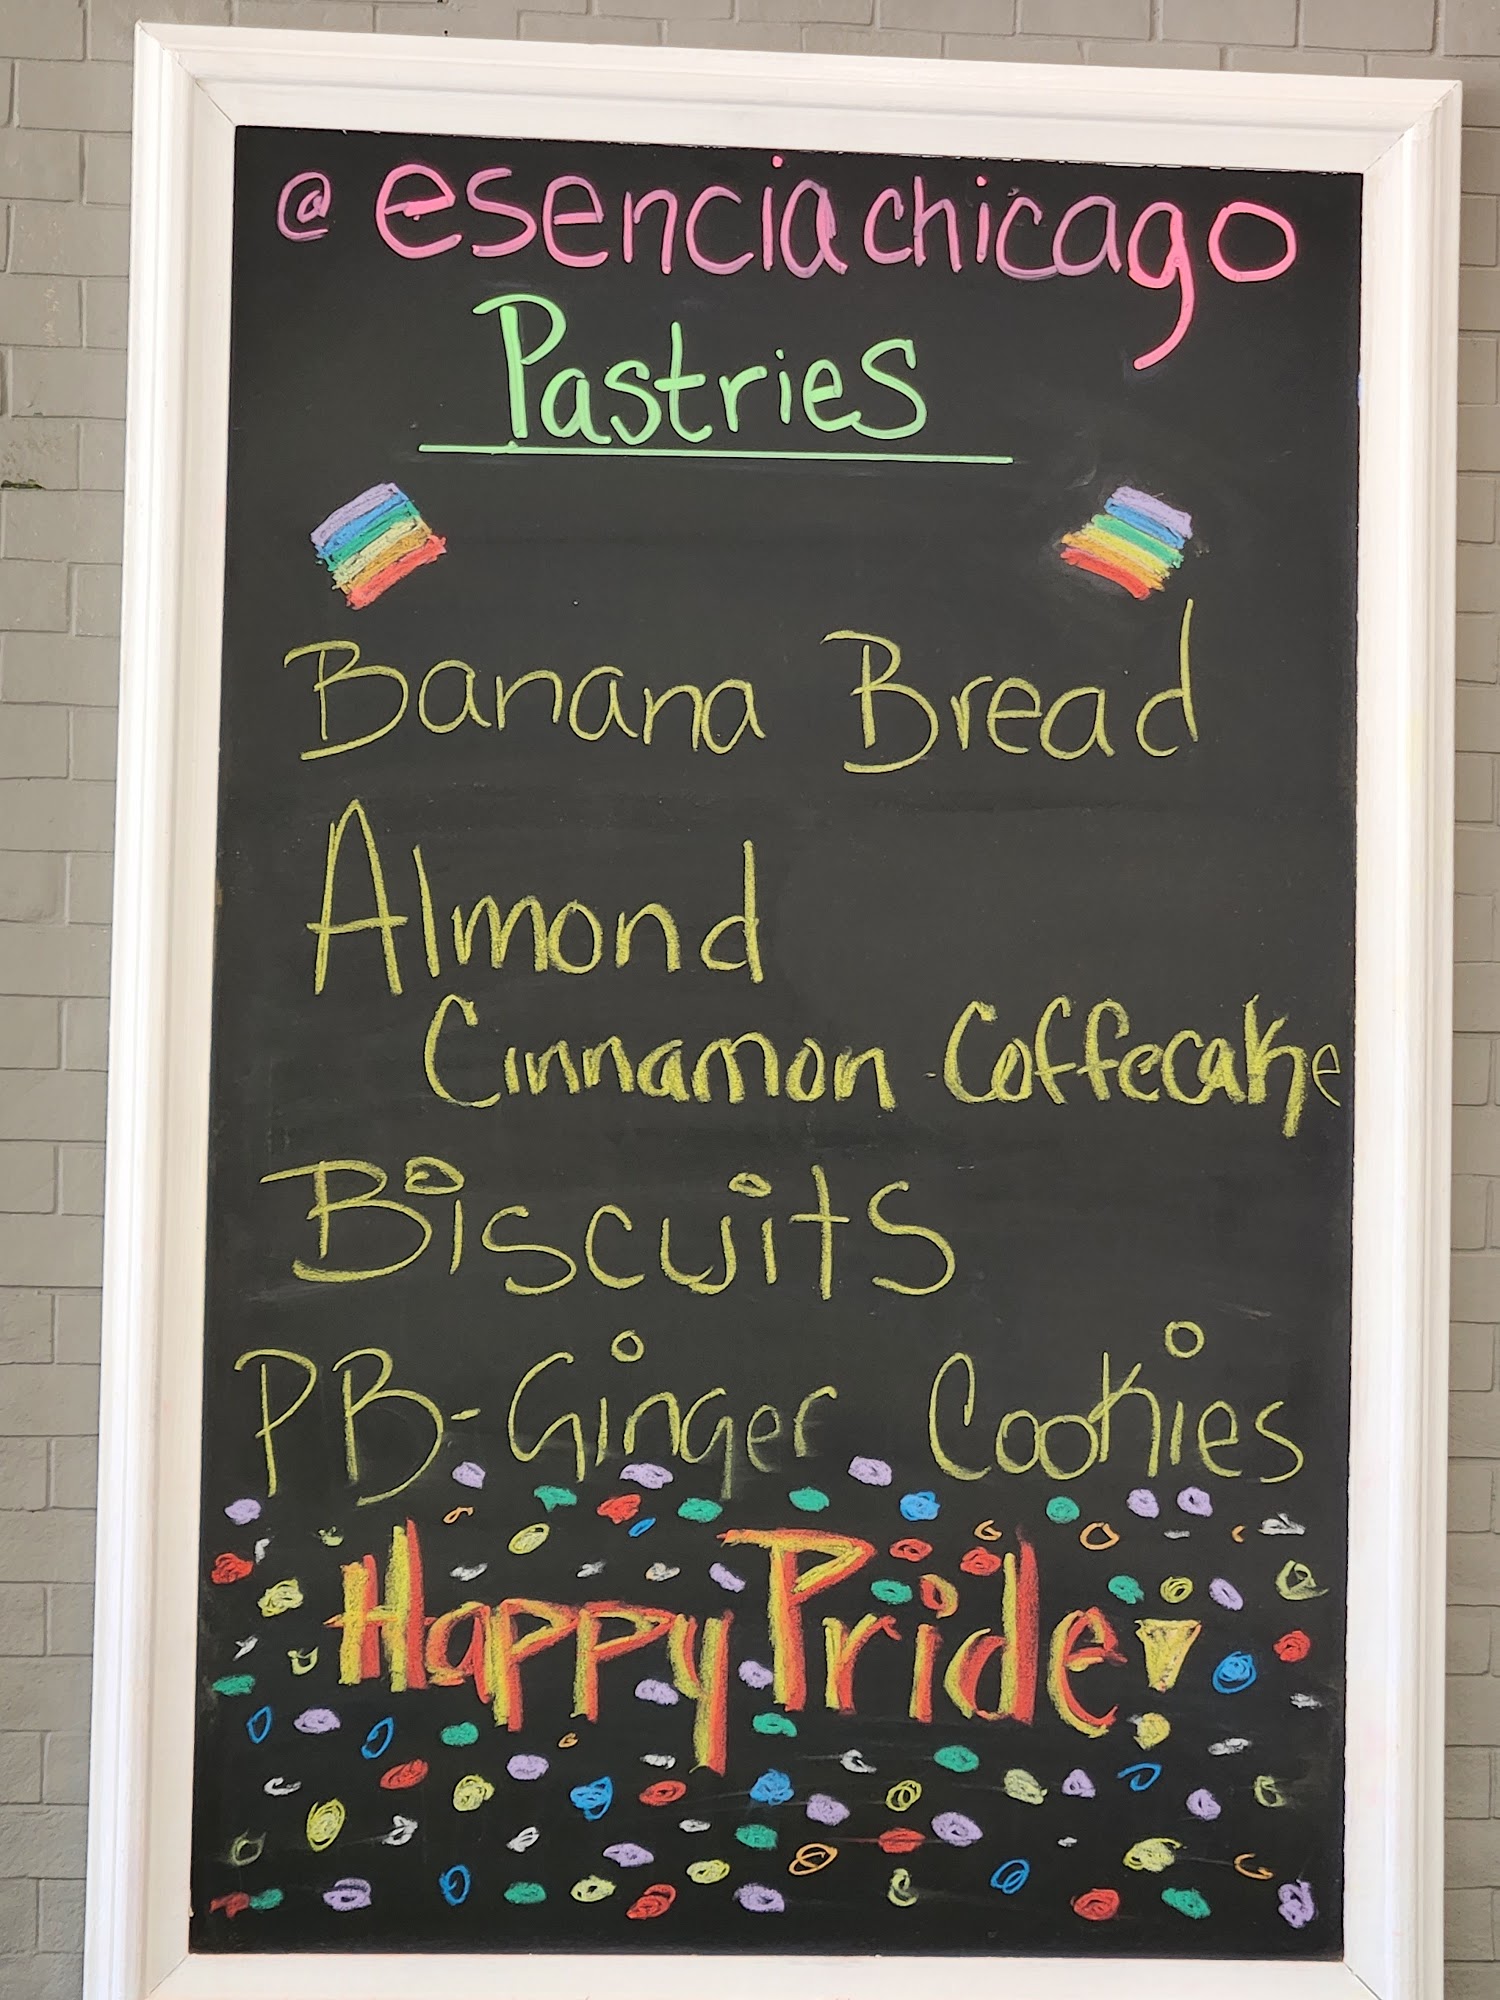 @esenciachicago
Pastries
Banana Bread
Almond
Cinnamon Coffecake
Biscuits
PB-Ginger Cookies
Happy Pride!